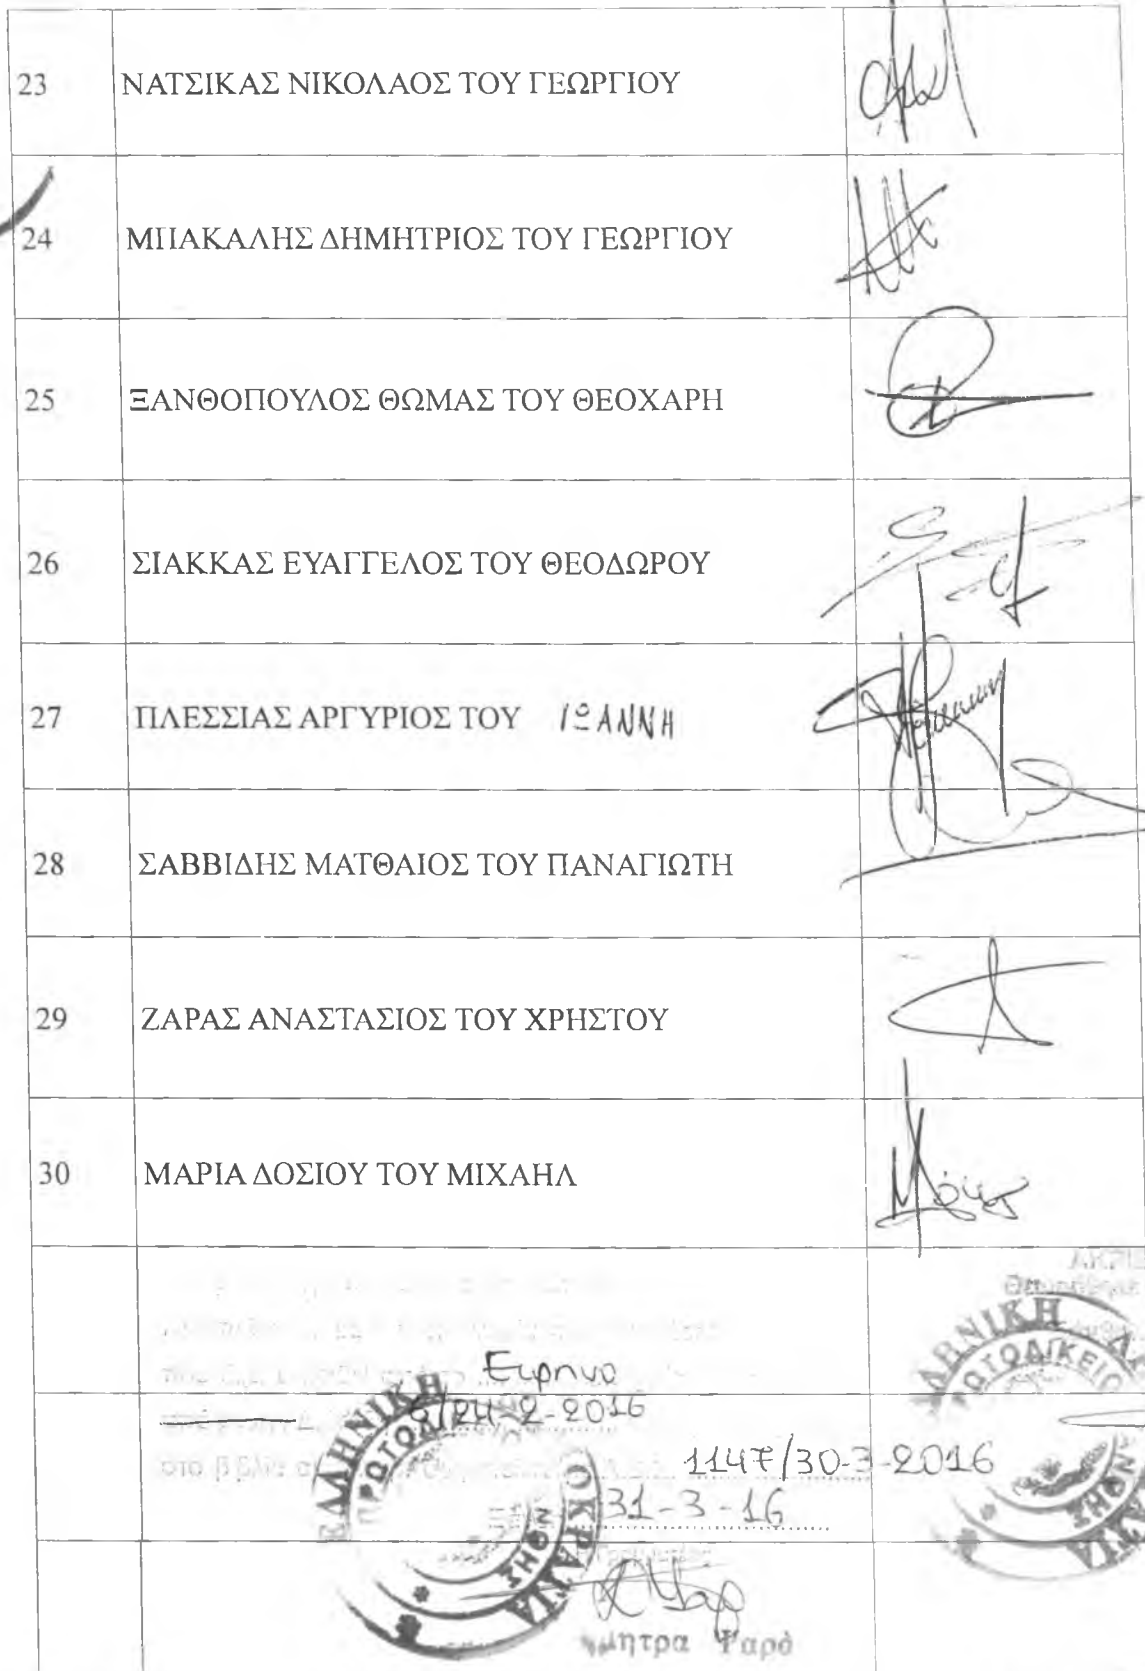 23 ΝΑΤΣΙΚΑΣ ΝΙΚΟΛΑΟΣ ΤΟΥ ΓΕΩΡΓΙΟΥ
24 ΜΠΑΚΑΛΗΣ ΔΗΜΗΤΡΙΟΣ ΤΟΥ ΓΕΩΡΓΙΟΥ
25 ΞΑΝΘΟΠΟΥΛΟΣ ΘΩΜΑΣ ΤΟΥ ΘΕΟΧΑΡΗ
26 ΣΙΑΚΚΑΣ ΕΥΑΓΓΕΛΟΣ ΤΟΥ ΘΕΟΔΩΡΟΥ
27 ΠΛΕΣΣΙΑΣ ΑΡΓΥΡΙΟΣ ΤΟΥ ΙΩΑΝΝΗ
28 ΣΑΒΒΙΔΗΣ ΜΑΤΘΑΙΟΣ ΤΟΥ ΠΑΝΑΓΙΩΤΗ
29 ΖΑΡΑΣ ΑΝΑΣΤΑΣΙΟΣ ΤΟΥ ΧΡΗΣΤΟΥ
30 ΜΑΡΙΑ ΔΟΣΙΟΥ ΤΟΥ ΜΙΧΑΗΛ
/24-2-2016
στο
1147/30-3-2016
31-3-16
Ψαρό